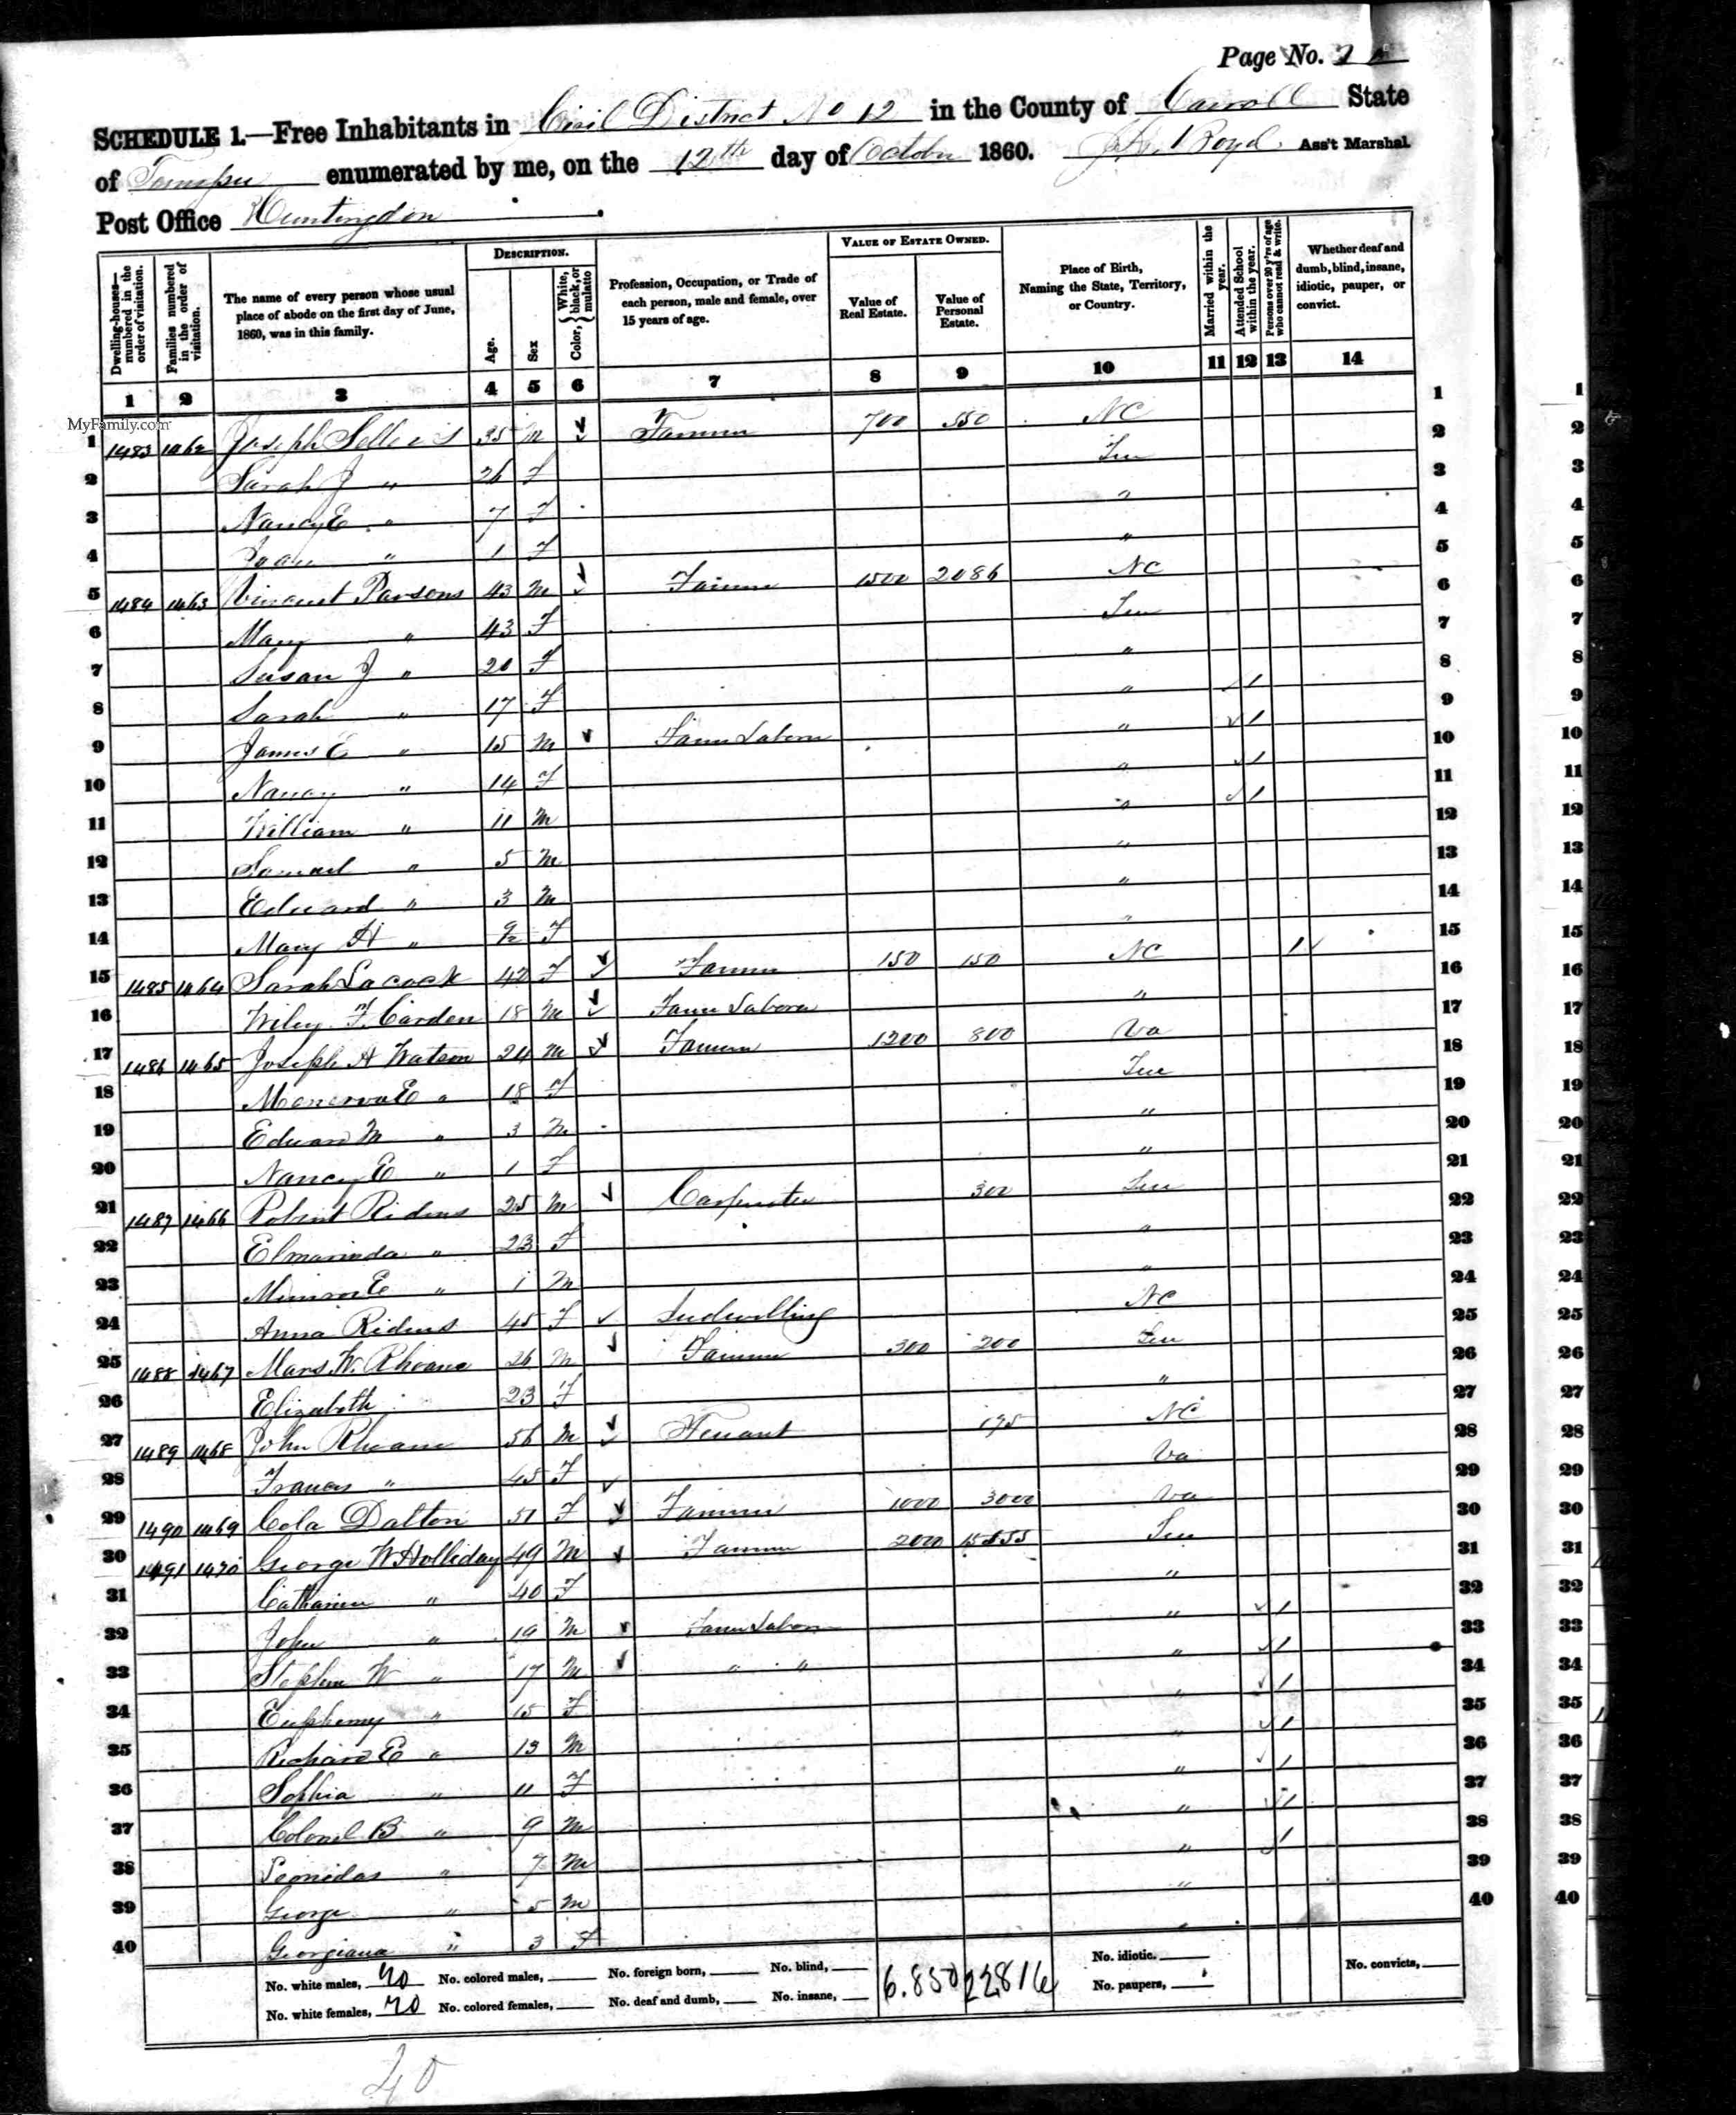 Page No. 
SCHEDULE 1.—Free Inhabitants in Civil District No 12 in the County of Carroll State
of Tennessee enumerated by me, on the 12th day of October 1860. Boyd. Ass't Marshal
Post Office Huntingdon
Dwelling-houses—numbered in the order of visitation.
Families numbered in the order of visitation.
The name of every person whose usual place of abode on the first day of June, 1860, was in this family.
DESCRIPTION.
Age.
Sex
Color, { White, black, or mulatto
Profession, Occupation, or Trade of each person, male and female, over 15 years of age.
VALUE OF ESTATE OWNED.
Value of Real Estate.
Value of Personal Estate.
Place of Birth, Naming the State, Territory, or Country.
Married within the year.
Attended School within the year.
Persons over 20 y'rs of age who cannot read & write.
Whether deaf and dumb, blind, insane, idiotic, pauper, or convict.
1 2 3 4 5 6 7 8 9 10 11 12 13 14
MyFamily.com
1 1483 1462 Joseph Sellers 35 M Farmer 700 550 NC 1
2 Sarah J " 26 F Ten 2
3 Nancy E " 7 F " 3
4 " 1 F " 4
5 1484 1463 Vincent Parsons 43 M Farmer 1500 2086 NC 5
6 Mary " 43 F Ten 6
7 Susan J " 20 F " 7
8 Sarah " 17 F " 1 8
9 James E " 15 M Farm Labor " 1 9
10 Nancy " 14 F " 1 10
11 William " 11 M " 1 11
12 Samuel " 5 M " 12
13 Edward " 3 M " 13
14 Mary H " F " 14
15 1485 1464 Sarah Lacock 42 F Farmer 150 150 NC 1 15
16 Wiley F. Carden 18 M Farm Labor " 16
17 1486 1465 Joseph H Watson 24 M Farmer 1200 800 Va 17
18 Menerva E " 18 F Ten 18
19 Edward M " 3 M " 19
20 Nancy E " 1 F " 20
21 1487 1466 Robert Ridens 25 M Carpenter 300 Ten 21
22 Elmarinda " 23 F " 22
23 E " 1 M " 23
24 Anna Ridens 45 F NC 24
25 1488 1467 W. Rhoane 26 M Farmer 300 200 Ten 25
26 Elizabeth 23 F " 26
27 1489 1468 John Rhoane 56 M Tenant 175 NC 27
28 Frances " 45 F Va 28
29 1490 1469 Cola Dalton 51 F Farmer 1000 3000 Va 29
30 1491 1470 George W Holliday 49 M Farmer 2000 Ten 30
31 Catharine " 40 F " 31
32 John " 19 M Farm Labor " 1 32
33 Stephen W " 17 M " " " 1 33
34 Euphemy " 15 F " 1 34
35 Richard E " 13 M " 1 35
36 Sophia " 11 F " 1 36
37 Colonel B " 9 M " 1 37
38 Leonidas " 7 M " 1 38
39 George " 5 M " 39
40 Georgiana " 3 F " 40
No. white males, No. colored males, No. foreign born, No. blind, 6.850 22816 No. idiotic. No. convicts,
No. white females, No. colored females, No. deaf and dumb, No. insane, No. paupers,